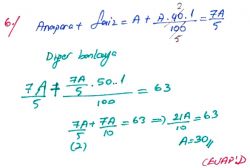 6/ Anapara + faiz = A + A.40.1/100 = 7A/5
2
5
Diğer bankaya
7A/5 + 7A/5 .50.1/100 = 63
7A/5 + 7A/10 = 63 => 21A/10 = 63
(2)
A=30//
CEVAP:D